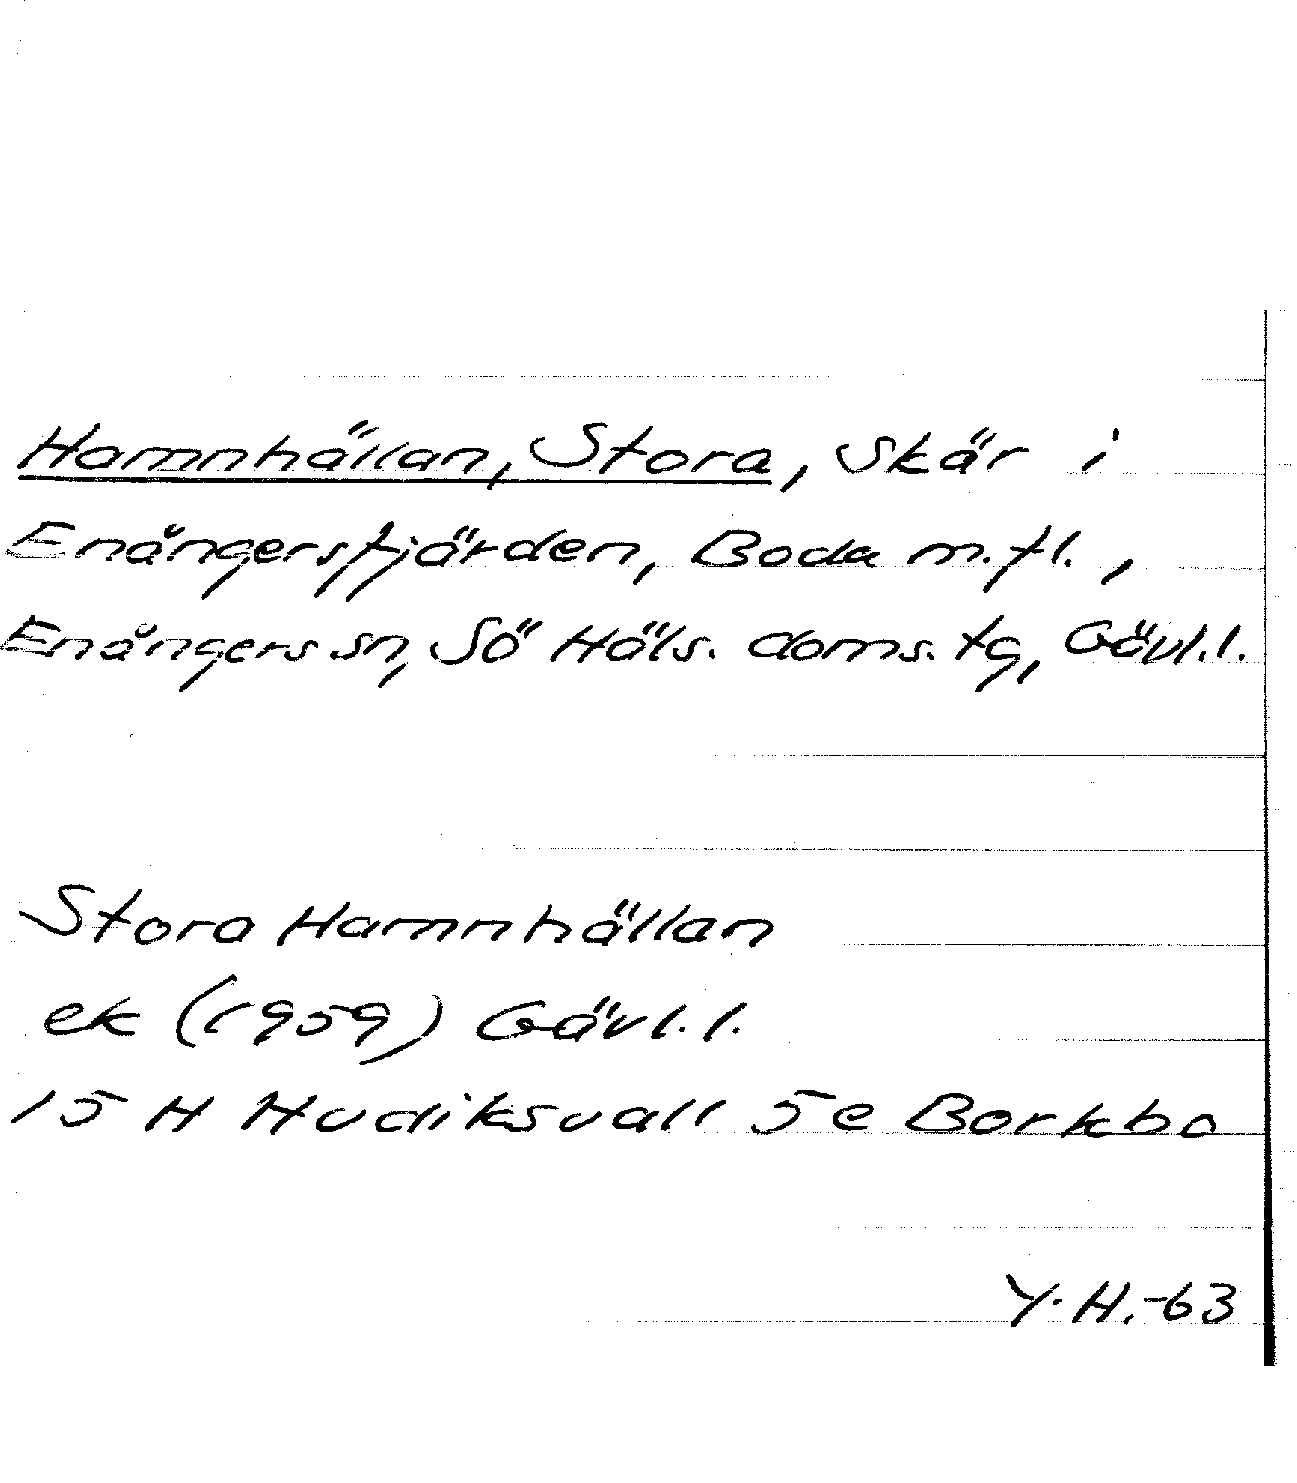 Hamnhällan, Stora, skär i
Enångersfjärden, Boda m.fl.,
Enångers sn, Sö Häls. doms. tg, Gävl.l.
Stora Hamnhällan
ek (1959) Gävl.l.
15 H Hudiksvall 5e Borkbo
Y.H.-63